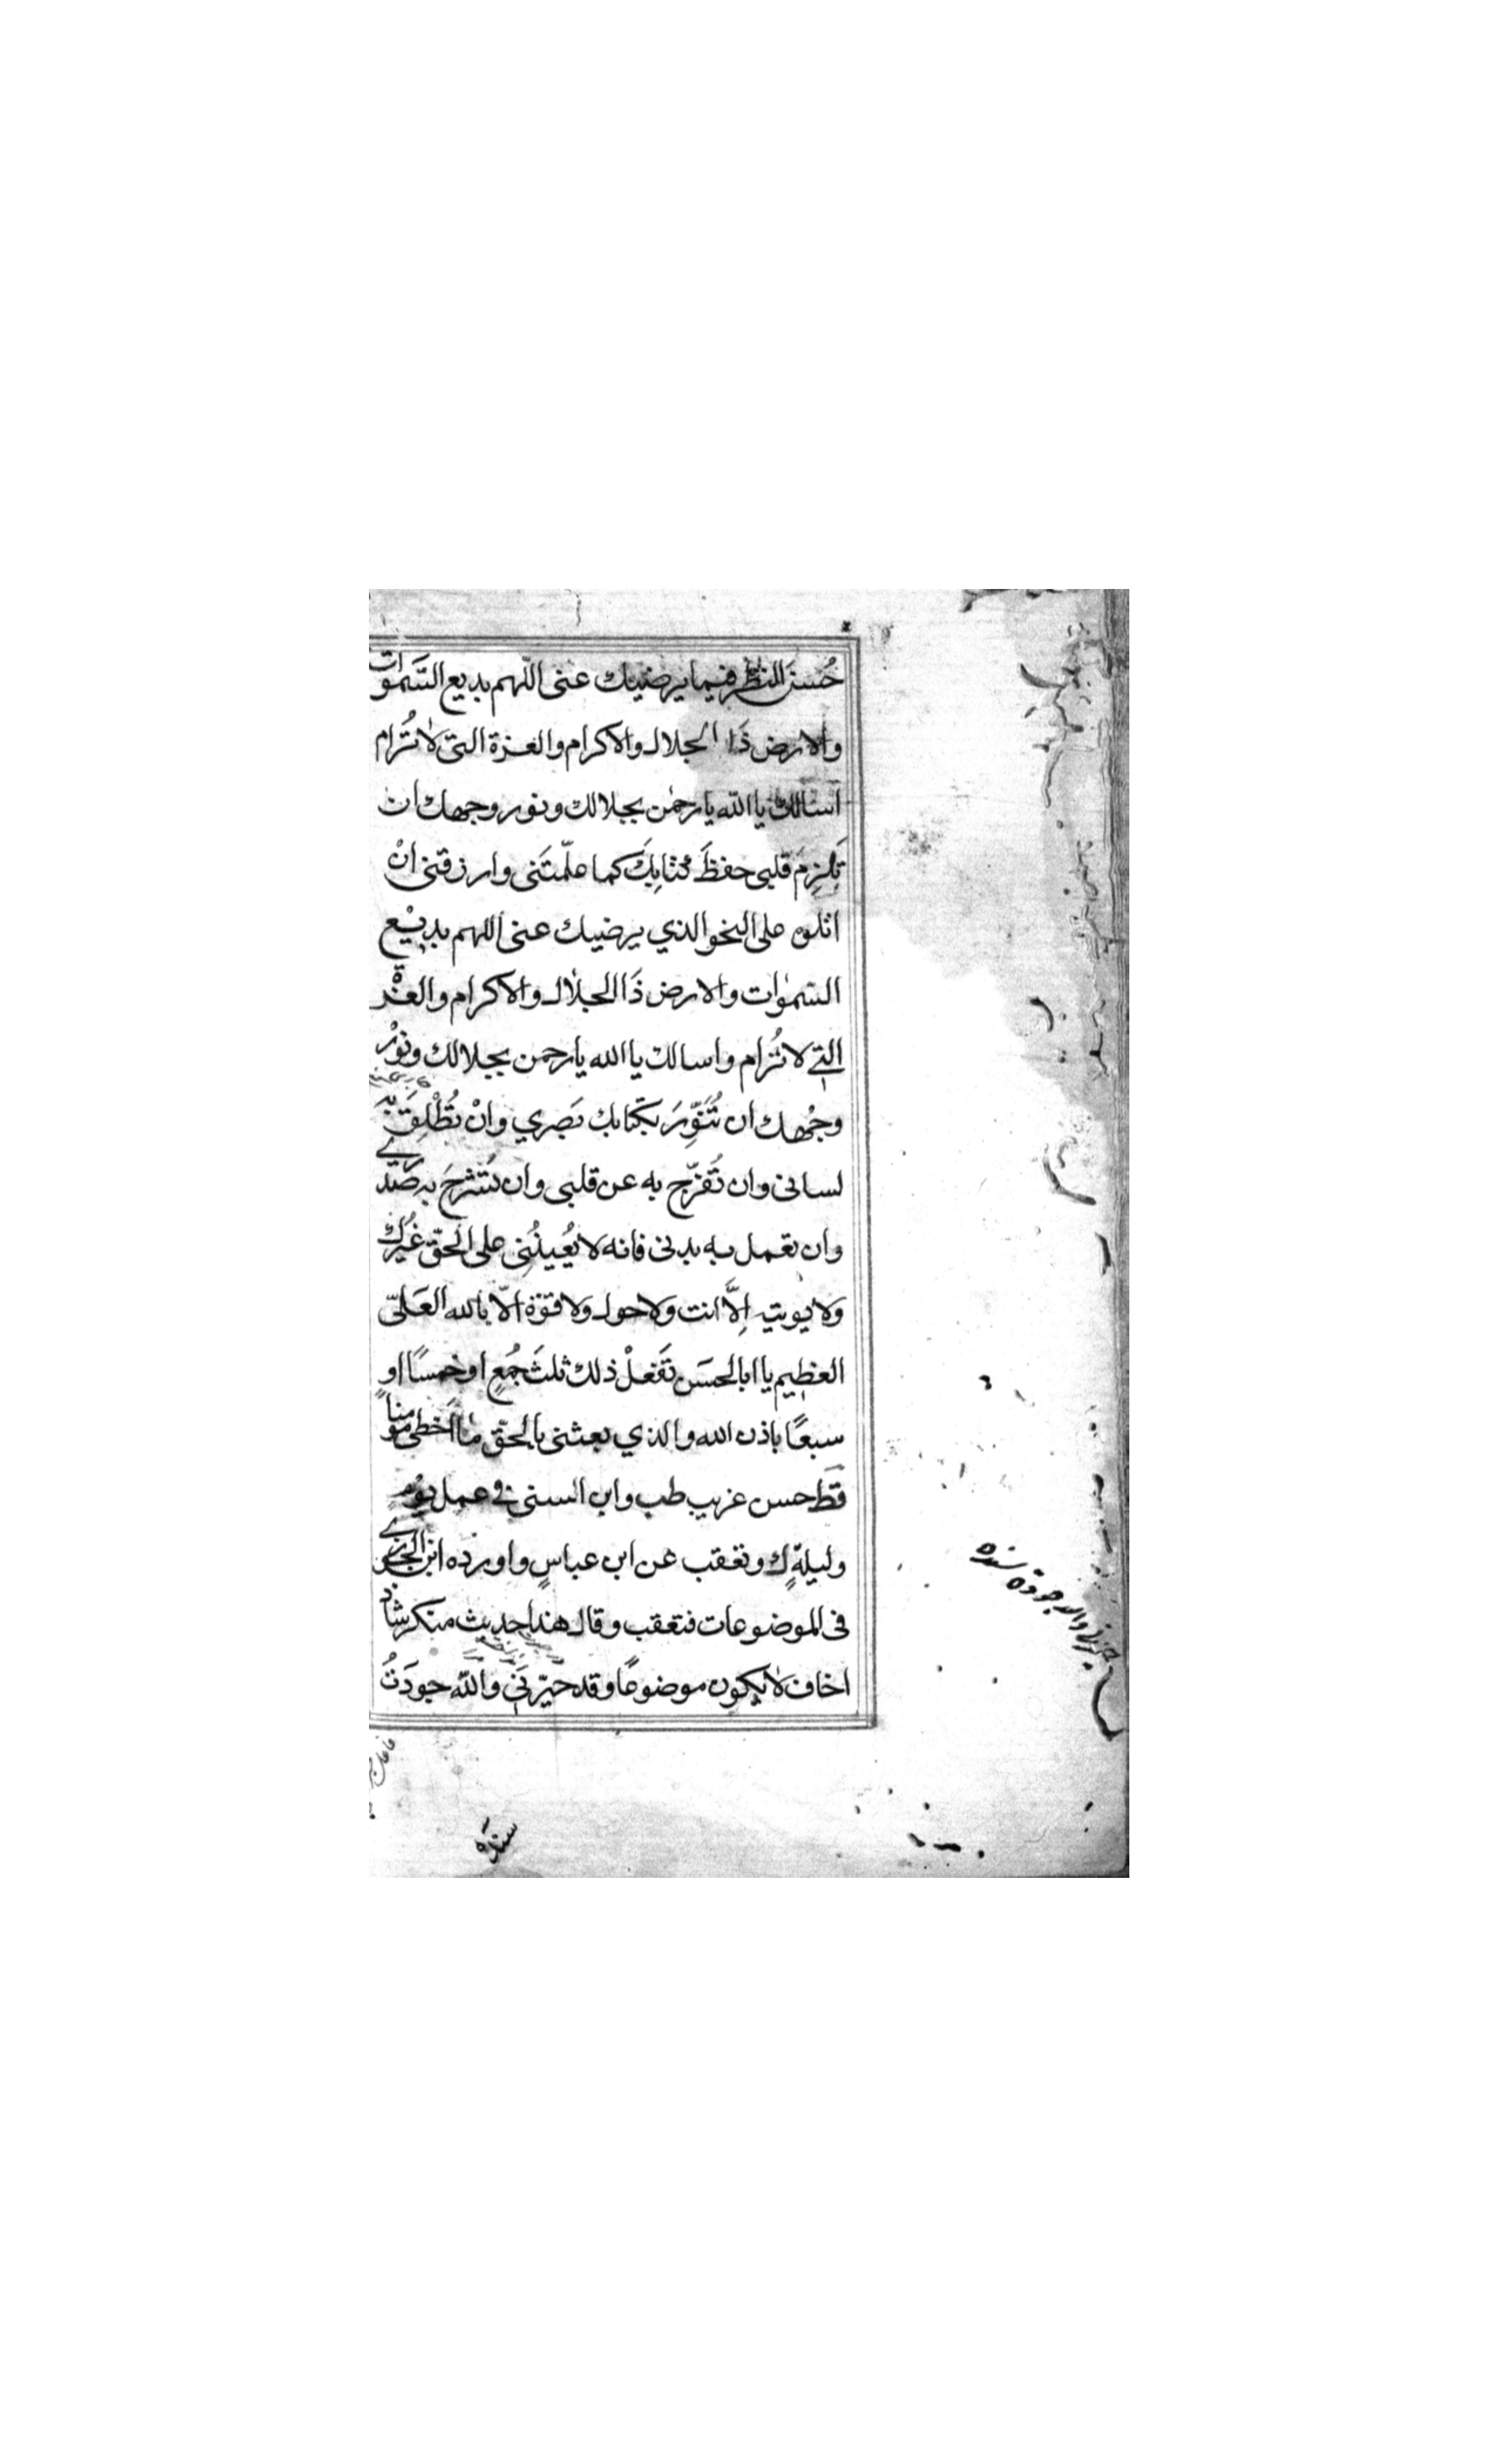 حُسنَ النظر فيما يرضيك عنى اللّهم بديع السّموات
والارض ذَا الجلال والاكرام والعزة التى لا تُرام
اسالك يا الله يا رحمٰن بجلالك ونور وجهك ان
تلزم قلبى حفظَ كتابِكَ كما علّمتَنى وارزقنى انْ
اتلوه على النحو الذي يرضيك عنى اللهم بديع
السّمٰوات والارض ذَا الجلال والاكرام والعزة
التى لا تُرام واسالك يا الله يا رحمن بجلالك ونور
وجهك ان تُنَوِّرَ بكتابك بَصرِي وانْ تُطْلِقَ به
لسانى وان تُفرّج به عن قلبى وان تَشرحَ به صَدرى
وان تعمل به بدنى فانه لا يُعينُنِى على الحقّ غيرُك
ولا يوتيه اِلَّا انت ولا حول ولا قوّة الّا بالله العَلىّ
العظيم يا ابا الحسَن تَفعلْ ذلك ثلثَ جُمَعٍ او خمسًا او
سبعًا باذن الله والذي بعثنى بالحقّ ما اَخطى مومنا
قَطّ حسن غريب طب وابن السنى فى عمل يومٍ
وليلةٍ ك وتعقب عن ابن عباسٍ واورده ابن الجوزى
فى الموضوعات فتعقب وقال هذا حديث منكر شاذ
اخاف لا يكون موضوعًا وقد حيّرنى والله جودَتُ
سنده
جودة سنده